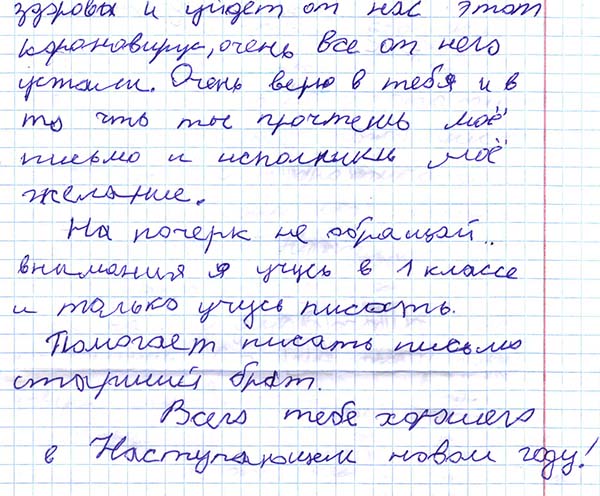 здоровы и уйдет от нас этот
коронавирус, очень все от него
устали. Очень верю в тебя и в
то что ты прочтешь моё
письмо и исполнишь моё
желание.
На почерк не обращай..
внимания я учусь в 1 классе
и только учусь писать.
Помогает писать письмо
старший брат.
Всего тебе хорошего
в Наступающем новом году!